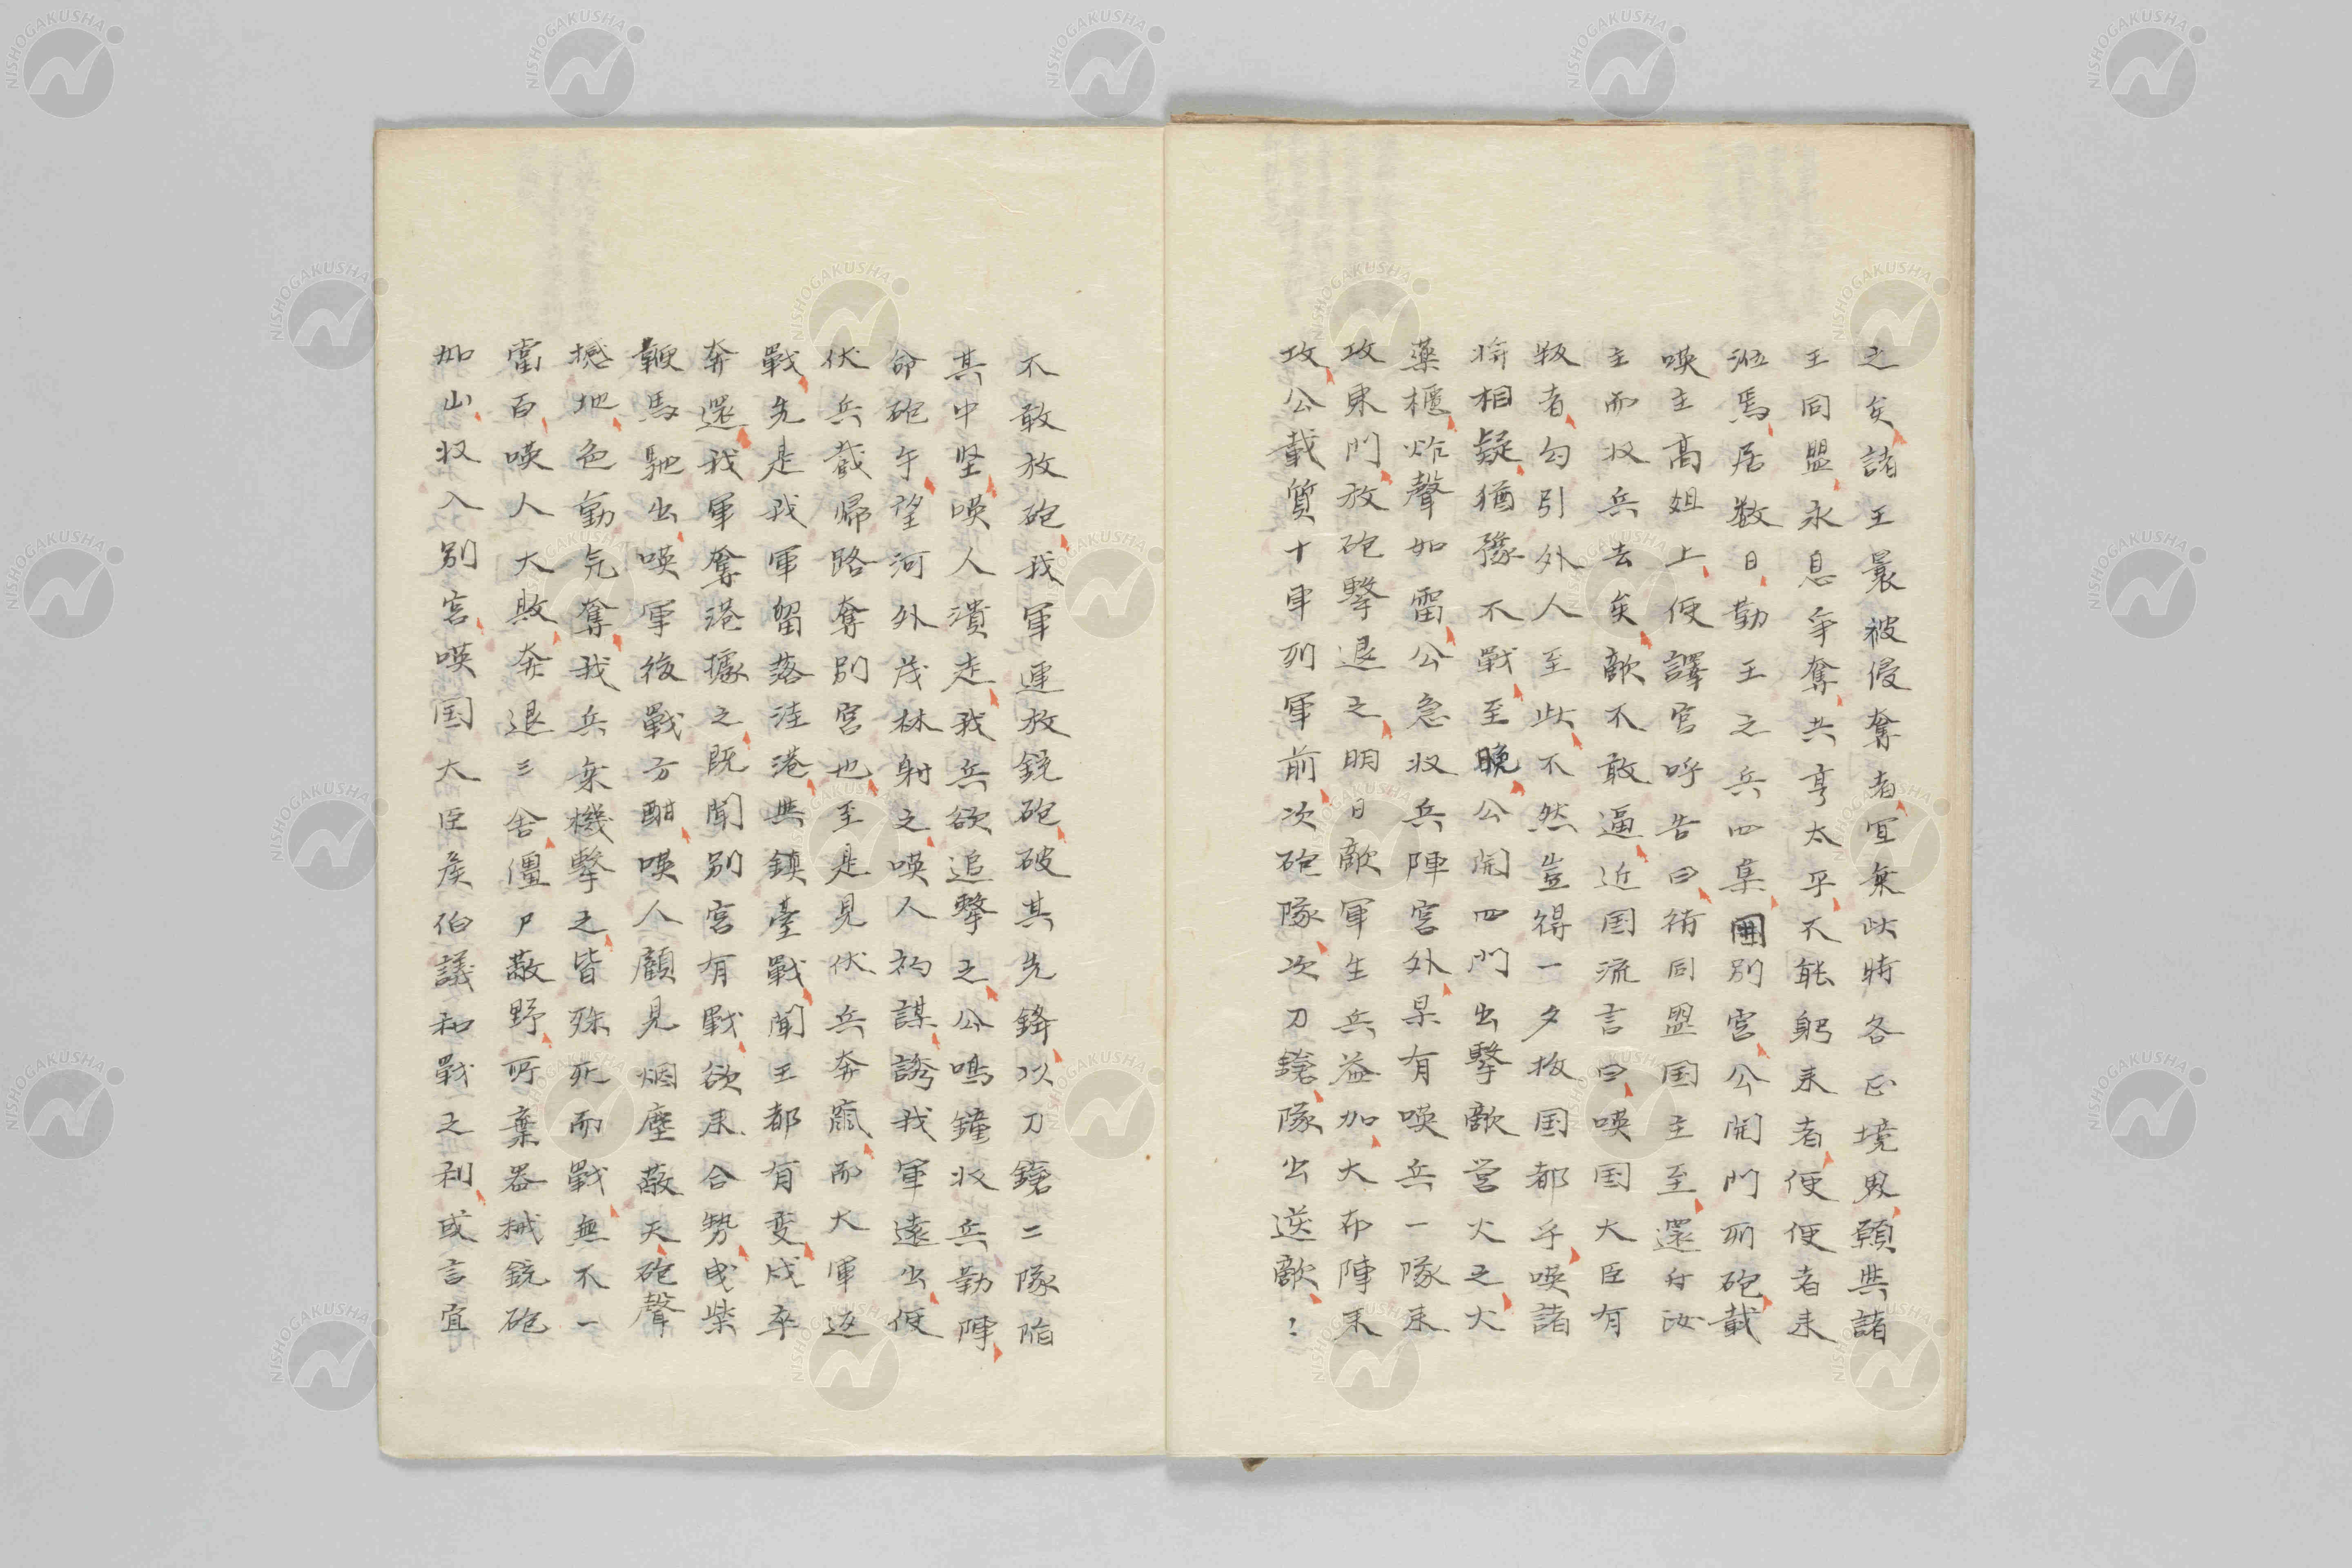 之矣諸王曩被侵奪者宜乗此時各正境界願與諸
王同盟永息争奪共享太平不能躬来者便使者来
涖焉居数日勤王之兵四集圍別宮公開門列砲載
暎主高俎上使譯官呼告曰待同盟国主至還付汝
主而収兵去矣敵不敢逼近国流言曰暎国大臣有
叛者勾引外人至此不然豈得一夕抜国都乎暎諸
将相疑猶豫不戰至晚公開四門出撃敵営火之火
藥櫃炸聲如雷公急収兵陣宮外果有暎兵一隊来
攻東門放砲擊退之明日敵軍生兵益加大布陣来
攻公載質十車列軍前次砲隊次刀鎗隊出逆敵〻
不敢放砲我軍連放銃砲破其先鋒以刀鎗二隊陥
其中堅暎人潰走我兵欲追擊之公鳴鐘収兵勒陣
命砲午望河外茂林射之暎人初謀誘我軍遠出使
伏兵截帰路奪別宮也至是見伏兵奔竄而大軍返
戰先是我軍留落洼港與鎮臺戰聞王都有変戍卒
奔還我軍奪港據之既聞別宮有戰欲来合勢曳柴
鞭馬馳出暎軍後戰方酣暎人顧見烟塵蔽天砲聲
撼地色動気奪我兵乗機擊之皆殊死而戰無不一
當百暎人大敗奔退三舎僵尸蔽野所棄器械銃砲
如山収入別宮暎国大臣矦伯議和戰之利或言宜
NISHOGAKUSHA